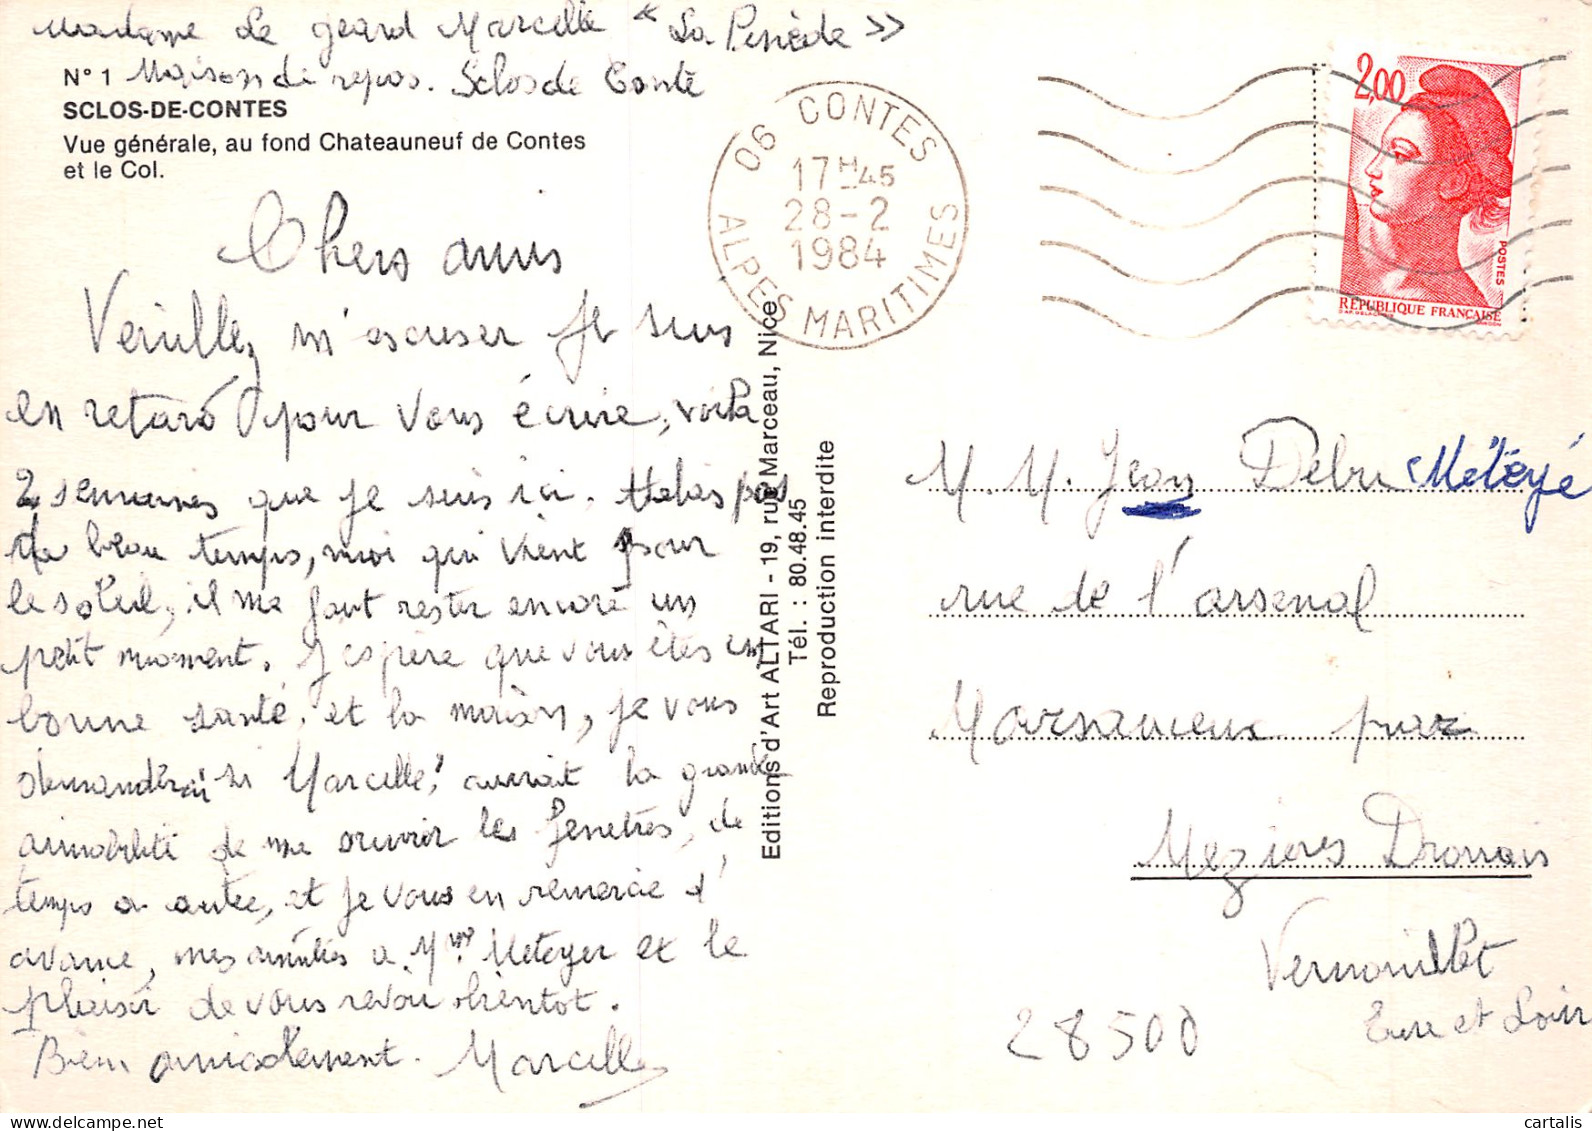 Madame Le geard Marcelle « La Pinède »
N° 1 Maison de repos. Sclos de Conte
SCLOS-DE-CONTES
Vue générale, au fond Chateauneuf de Contes
et le Col.
Chers amis
Veuillez m'escuser Je suis
en retard pour vous écrire, voila
2 semaines que je suis ici. Helas pas
de beau temps, moi qui vient pour
le soleil, il me faut rester encore un
petit moment. J'espère que vous êtes en
bonne santé, et la maison, je vous
demanderai si Marcelle, aurait la grande
aimabilité de me ouvrir les fenetres, de
temps a autre, et je vous en remercie d'
avance, mes amitiés a Mme Meteyer et le
plaisir de vous revoir bientot.
Bien amicalement. Marcelle
06 CONTES
17H45
28-2
1984
ALPES MARITIMES
2,00
POSTES
RÉPUBLIQUE FRANÇAISE
Editions d'Art ALTARI - 19, rue Marceau, Nice
Tél. : 80.48.45
Reproduction interdite
M. M. Jean Debru Météyé
rue de l'arsenal
Marsauceux par
Mezieres Drouais
Vernouillet
28500 Eure et Loir